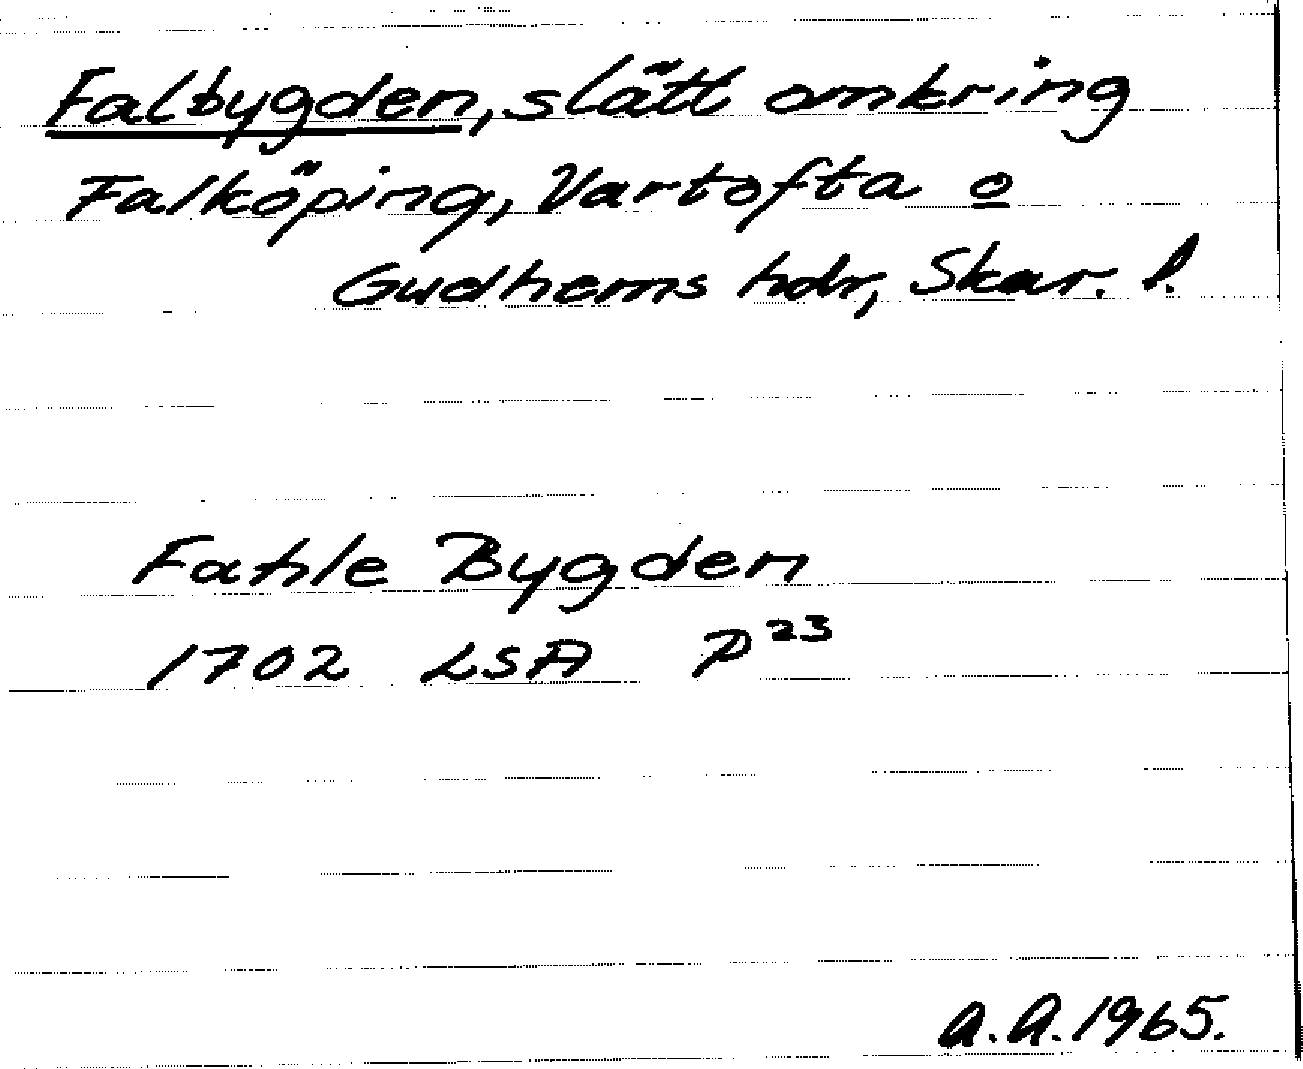 Falbygden, slätt omkring
Falköping, Vartofta o
Gudhems hdr, Skar. l.
Fahle Bygden
1702 LSA P 23
A.A. 1965.